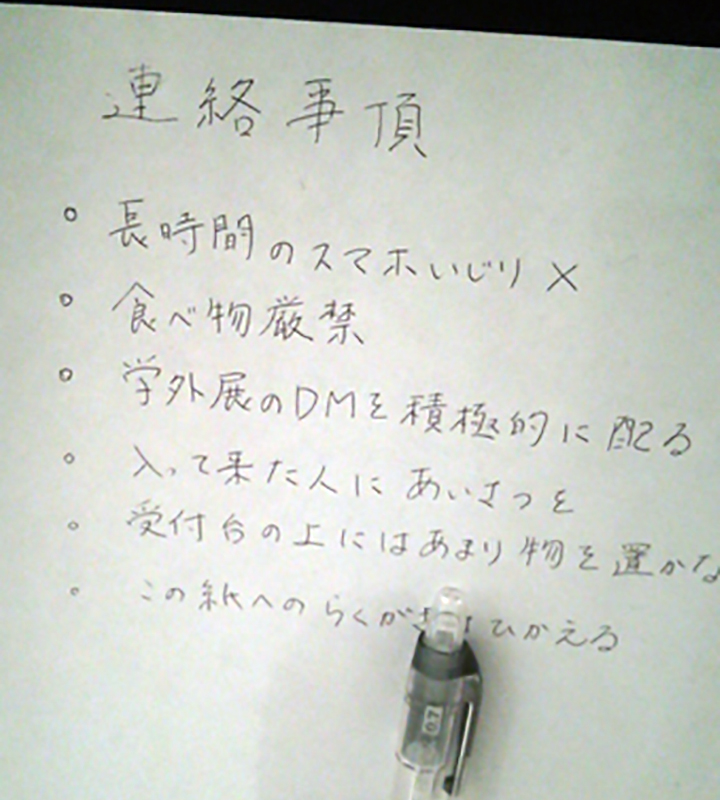 連絡事項
○ 長時間のスマホいじり×
○ 食べ物厳禁
○ 学外展のDMを積極的に配る
○ 入って来た人にあいさつを
○ 受付台の上にはあまり物を置かな
○ この紙へのらくが ひかえる
0.7